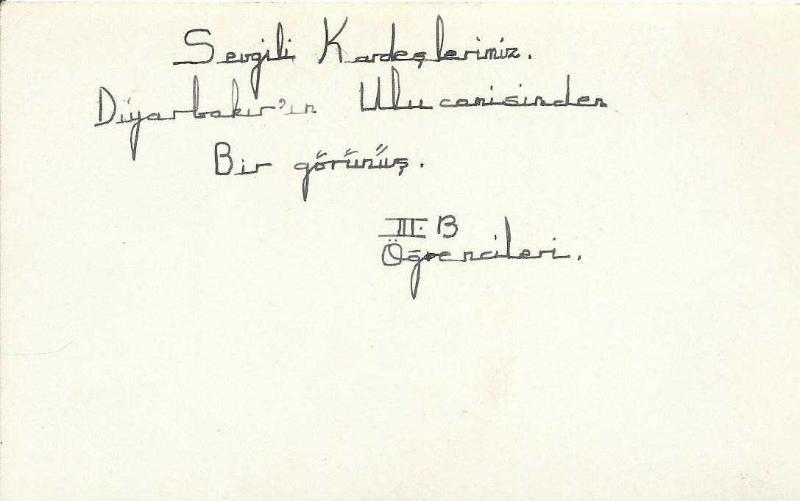 Sevgili Kardeşlerimiz.
Diyarbakır'ın Ulu camisinden
Bir görünüş.
III. B
Öğrencileri.